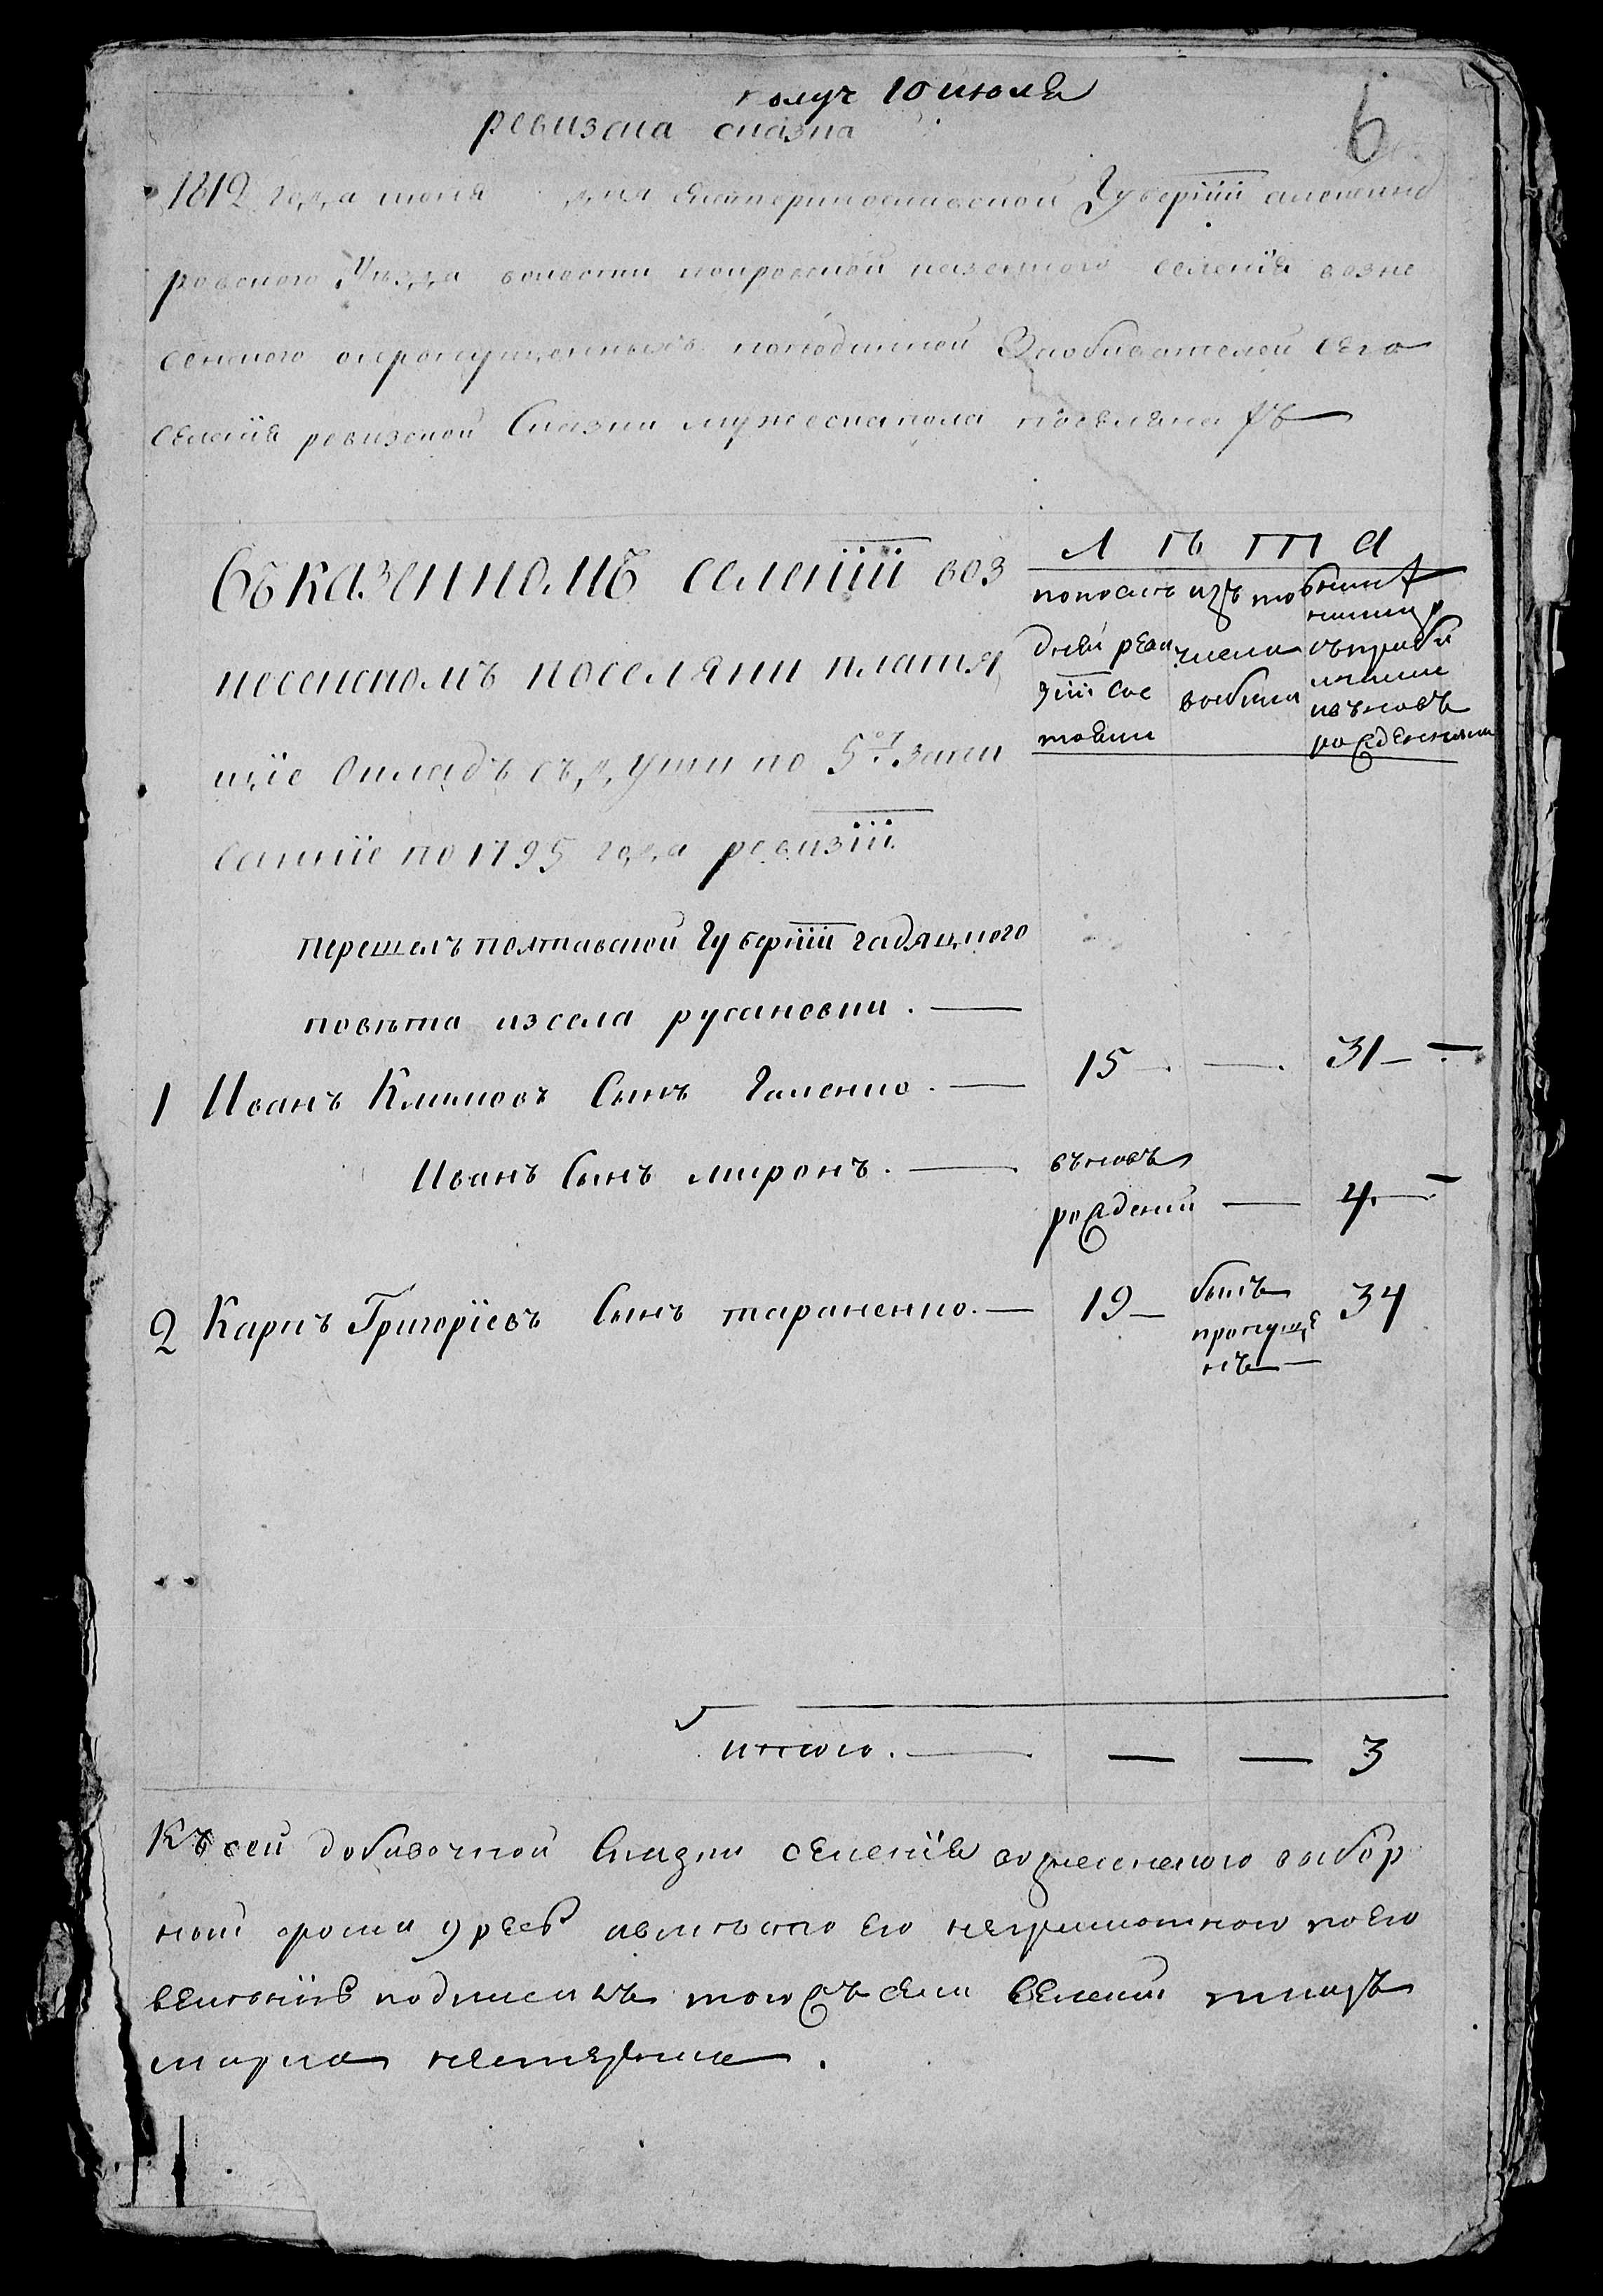 получ 10 июля
6
ревизска сказка
1812 года июня дня Екатеринославской Губернïи александ
ровского Уезда волости покровской казенного селенïя возне
сенского опропущенныхъ поподанной Зообивателей сего
селенïя ревизской Сказки мужескапола поселянахъ
Въ казенномъ селенïи воз
несенскомъ поселяни платя
щïе Окладъ съ души по 5 запи
саннïе по 1795 года ревизïи
лѣта
попослѣ
дней реви
зïи сос
тояли
изъ то
числа
выбыли
нынѣ
налицо
съприбы
лыми
ивъновь
рожденными
перешелъ полтавской Губернïи гадяцкого
повѣта изсела русановки .
1 Иванъ Климовъ Сынъ Галенко . 15 31
Иванъ Сынъ миронъ . въновь
рождений 4
2 Карпъ Григорïевъ Сынъ тараненко . 19 былъ
пропуще
нъ 34
итого . 3
Къ сей добавочной Сказки селенïя вознесенского выбор
ний авместо его неграмотного поего
веленïю подписалъ тогожъ селенïи
марко .